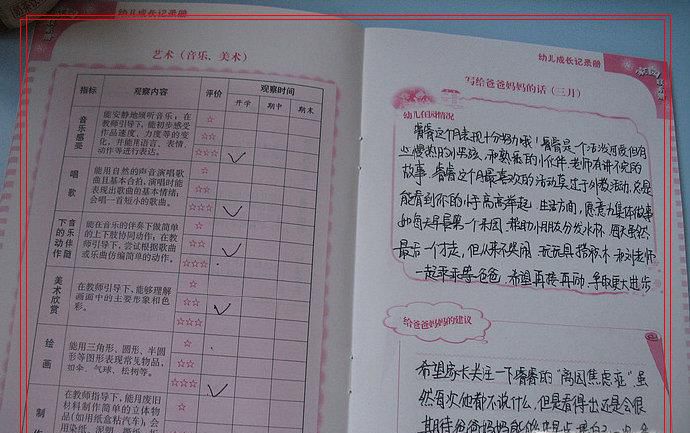 幼儿成长记录册
艺术（音乐、美术）
指标 观察内容 评价 观察时间
开学 期中 期末
音乐感受
能安静地倾听音乐；在
教师引导下，能初步感受
作品速度、力度等的变
化，并能用语言、表情、
动作等进行表达。
☆
☆☆
☆☆☆
唱歌
能用自然的声音演唱歌
曲且基本合拍，演唱时能
表现出歌曲的基本情绪；
会唱一首短小的歌曲。
☆
☆☆
☆☆☆
音乐伴随下的动作
能在音乐的伴奏下做简单
的上下肢协同动作；在教
师引导下，尝试根据歌曲
或乐曲仿编简单的动作。
☆
☆☆
☆☆☆
美术欣赏
在教师引导下，能够理解
画面中的主要形象和色
彩。
☆
☆☆
☆☆☆
绘画
能用三角形、圆形、半圆
形等图形表现常见物品，
如伞、气球、松树等。
☆
☆☆
☆☆☆
制作
在教师指导下，能用废旧
材料制作简单的立体物
品（如用纸盒粘汽车）；会
☆
☆☆
幼儿成长记录册
写给爸爸妈妈的话（三月）
幼儿在园情况
睿睿这个月表现十分努力哦！睿睿是个活泼可爱但有
些慢热的小男孩，和熟系的小伙伴、老师有讲不完的
故事。睿睿这个月最喜欢的活动莫过于小数活动，总是
能看到你的小手高高举起。生活方面，愿意为集体做事
如每天早晨第一个来园，帮助小朋友分发水杯，周五虽然
最后一个才走，但从来不哭闹，玩玩具、搭积木、和刘老师
一起乖乖等爸爸。希望再接再励，争取更大进步
给爸爸妈妈的建议
希望家长关注一下睿睿的“离园焦虑症”虽
然每次他都不说什么，但是看得出还是会很
期待爸爸妈妈能